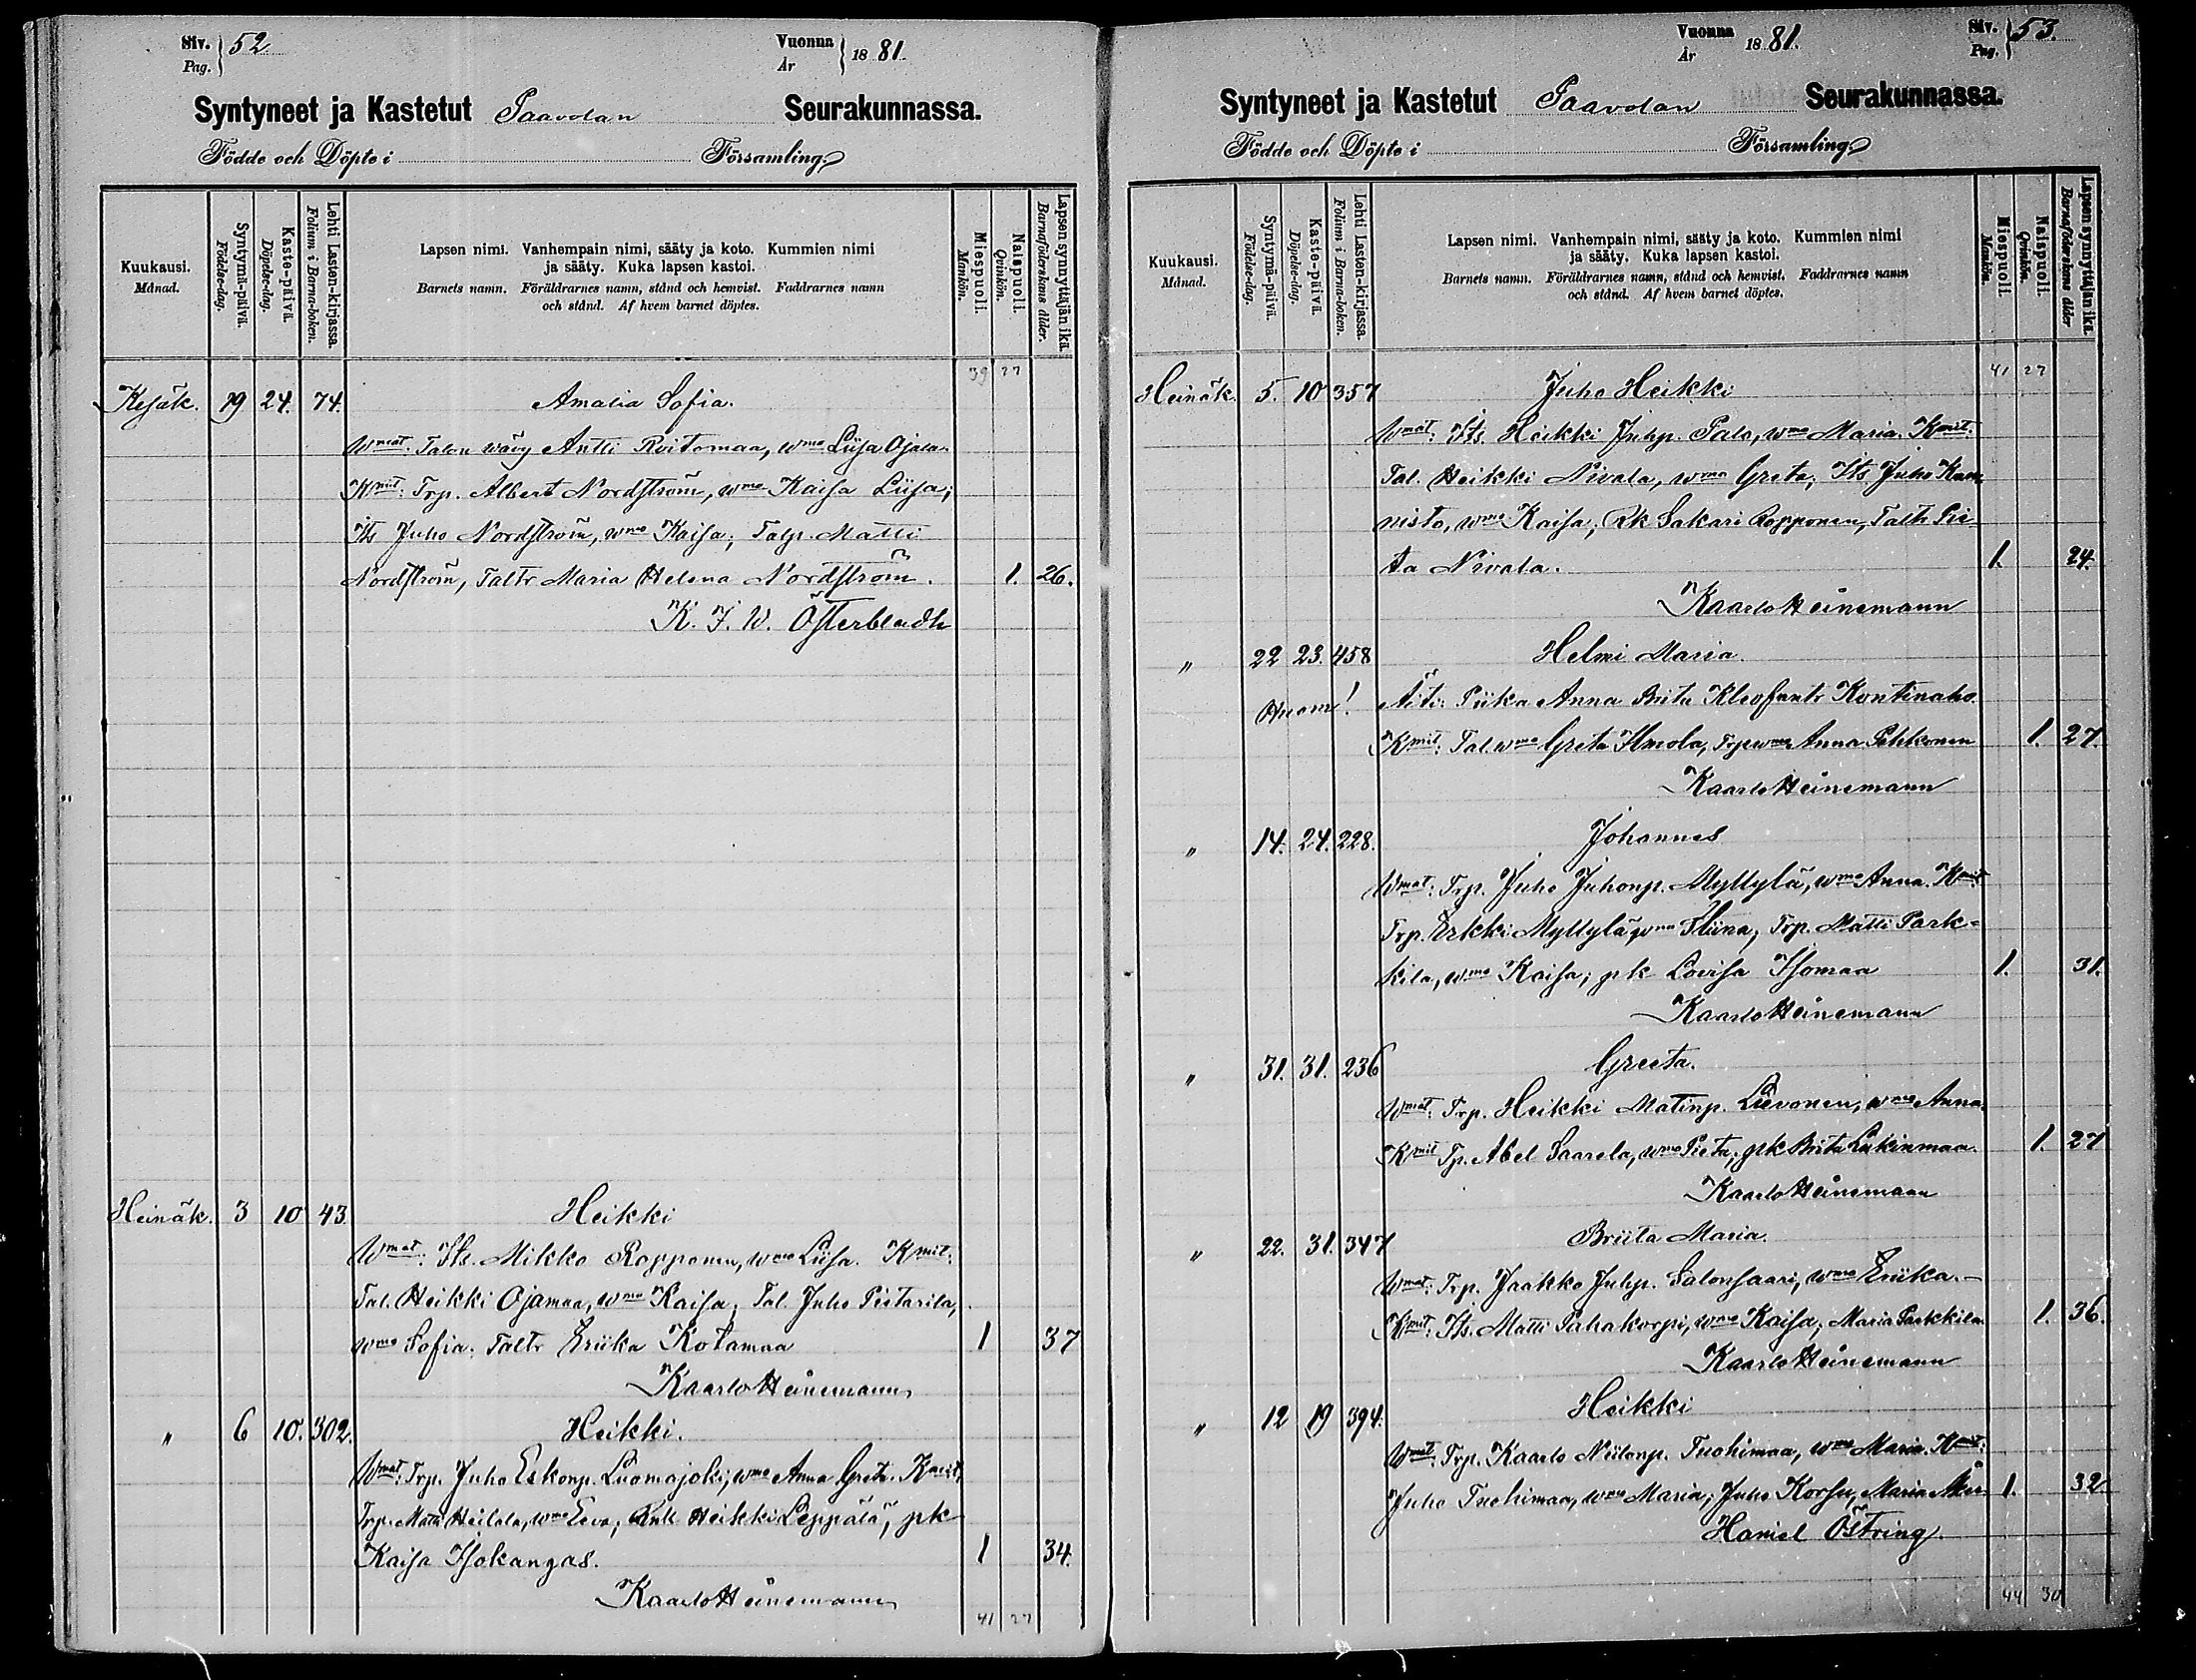 Siv. 52
Pag.
Vuonna 1881.
År
Syntyneet ja Kastetut Paavolan Seurakunnassa.
Födde och Döpte i Församling.
Kuukausi.
Månad.
Syntymä-päivä.
Födelse-dag.
Kaste-päivä.
Döpelse-dag.
Lehti Lasten-kirjassa.
Folium i Barna-boken.
Lapsen nimi. Vanhempain nimi, sääty ja koto. Kummien nimi
ja sääty. Kuka lapsen kastoi.
Barnets namn. Föräldrarnes namn, stånd och hemvist. Faddrarnes namn
och stånd. Af hvem barnet döptes.
Miespuoli.
Mankön.
Naispuoli.
Qvinkön.
Lapsen synnyttäjän ikä.
Barnaföderskans ålder.
39 27
Kesäk. 19 24. 74. Amalia Sofia.
Wmat. Talon wävy Antti Roitomaa, wmo Liisa Ojala.
Kmit: Trp. Albert Nordström, wmo Kaisa Liisa;
Its Juho Nordström, wmo Kaisa; Talp. Matti
Nordström, Taltr Maria Helena Nordström. 1. 26.
K. J. W. Österbladh
Heinäk. 3 10 43. Heikki
Wmat: Its. Mikko Ropponen, wmo Liisa. Kmit:
Tal. Heikki Ojamaa, wmo Kaisa, Tal. Juho Pietarila,
wmo Sofia, Taltr Eriika Kotamaa 1 37
Kaarlo Heinemann
" 6 10. 302. Heikki.
Wmat: Trp. Juho Eskonp. Luomajoki, wmo Anna Greta. Kmit:
Trp. Matti Heilala, wmo Eeva, Renk Heikki Leppälä, pk
Kaisa Isokangas. 1 34.
Kaarlo Heinemann
41 27
Vuonna 1881.
År
Siv. 53.
Pag.
Syntyneet ja Kastetut Paavolan Seurakunnassa.
Födde och Döpte i Församling
Kuukausi.
Månad.
Syntymä-päivä.
Födelse-dag.
Kaste-päivä.
Döpelse-dag.
Lehti Lasten-kirjassa.
Folium i Barna-boken.
Lapsen nimi. Vanhempain nimi, sääty ja koto. Kummien nimi
ja sääty. Kuka lapsen kastoi.
Barnets namn. Föräldrarnes namn, stånd och hemvist. Faddrarnes namn
och stånd. Af hvem barnet döptes.
Miespuoli.
Mankön.
Naispuoli.
Qvinkön.
Lapsen synnyttäjän ikä.
Barnaföderskans ålder
41 27
Heinäk. 5. 10 357 Juho Heikki
Wmat: Its. Heikki Juhp. Palo, wmo Maria. Kmit:
Tal. Heikki Nivala, wmo Greta; Its Juho Kan
nisto, wmo Kaisa; Rk Sakari Ropponen, Taltr Pie
ta Nivala. 1. 24.
Kaarlo Heinemann
" 22 23. 458 Helmi Maria.
Huom! Äiti: Piika Anna Brita Kleofantr Kontinaho.
Kmit: Tal. wmo Greta Ilmola, Trp wmo Anna Pehkonen 1. 27.
Kaarlo Heinemann
" 14. 24. 228. Johannes
Wmat: Trp. Juho Juhonp. Myllylä, wmo Anna. Kmit
Trp. Erkki Myllylä, wmo Stiina, Trp. Matti Park=
kila, wmo Kaisa; pk Lovisa Isomaa 1. 31.
Kaarlo Heinemann
" 31. 31. 236 Greeta.
Wmat: Trp. Heikki Matinp. Lievonen, wmo Anna.
Kmit Tp. Abel Saarela, wmo Pieta; pk Brita Lukinmaa. 1. 27
Kaarlo Heinemann
" 22. 31. 347 Briita Maria.
Wmat: Trp. Jaakko Juhp. Salonsaari, wmo Eriika.
Kmit: Its. Matti Pahakorpi, wmo Kaisa; Maria Parkkila. 1. 36.
Kaarlo Heinemann
" 12 19 394. Heikki
Wmat: Trp. Kaarlo Niilonp. Tuohimaa, wmo Maria. Kmit:
Juho Tuohimaa, wmo Maria; Juho Korsu, Maria 1. 32
Haniel Östring
44 30